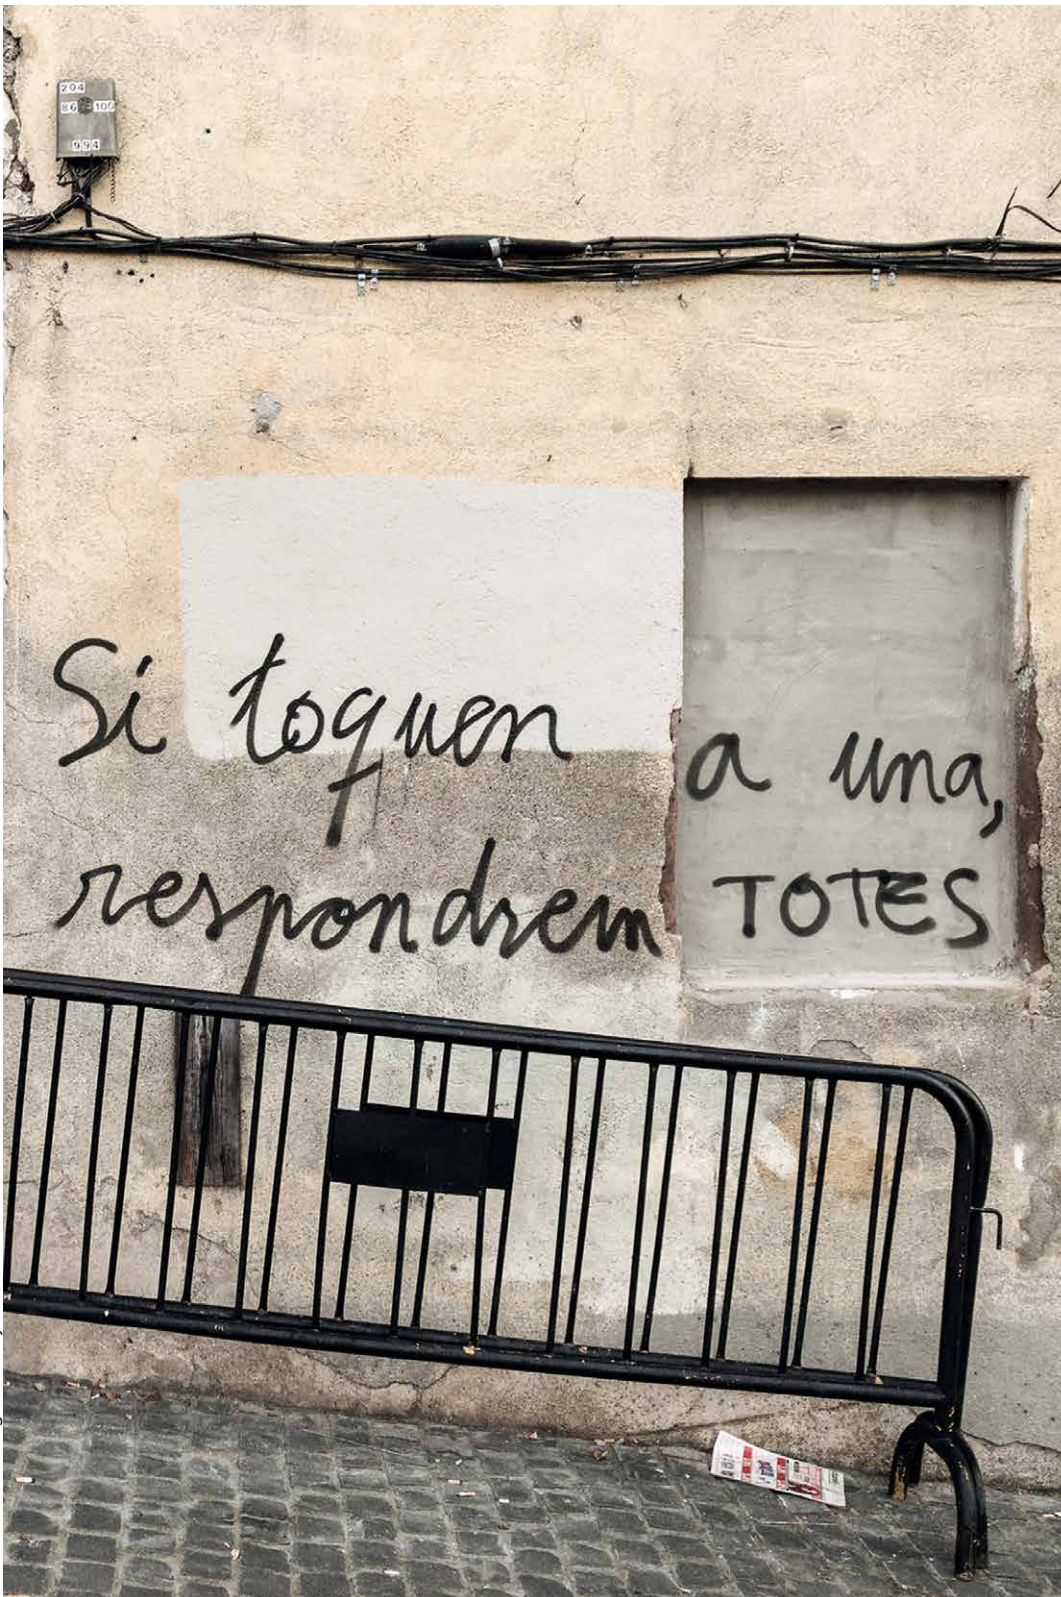 204
86 100
994
Si toquen a una,
respondrem TOTES